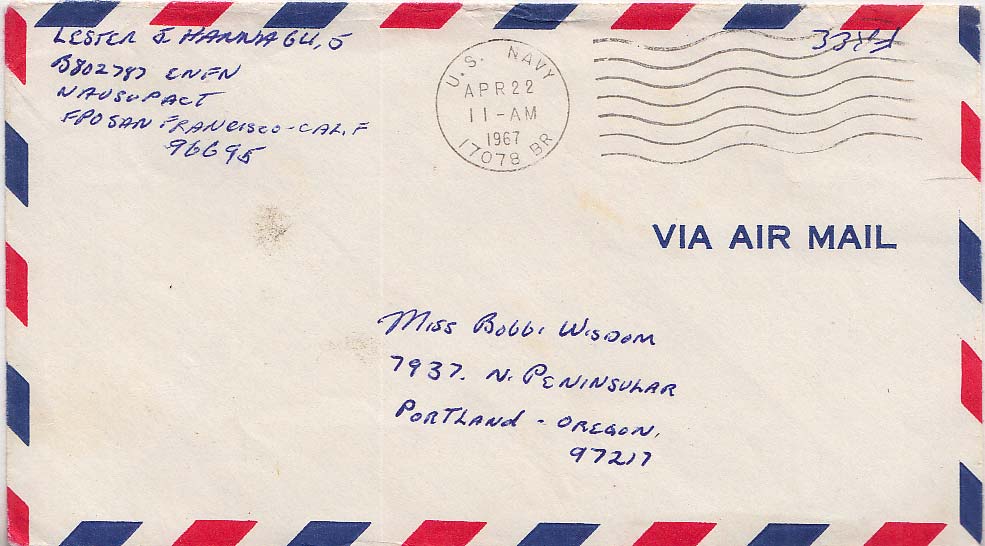 LESTER J
B802787 ENFN
NAVSUPACT
FPO SAN FRANCISCO - CALIF
96695
U.S. NAVY
APR 22
11-AM
1967
17078 BR
Free
VIA AIR MAIL
Miss Bobbi Wisdom
7937. N. PENINSULAR
PORTLAND - OREGON.
97217